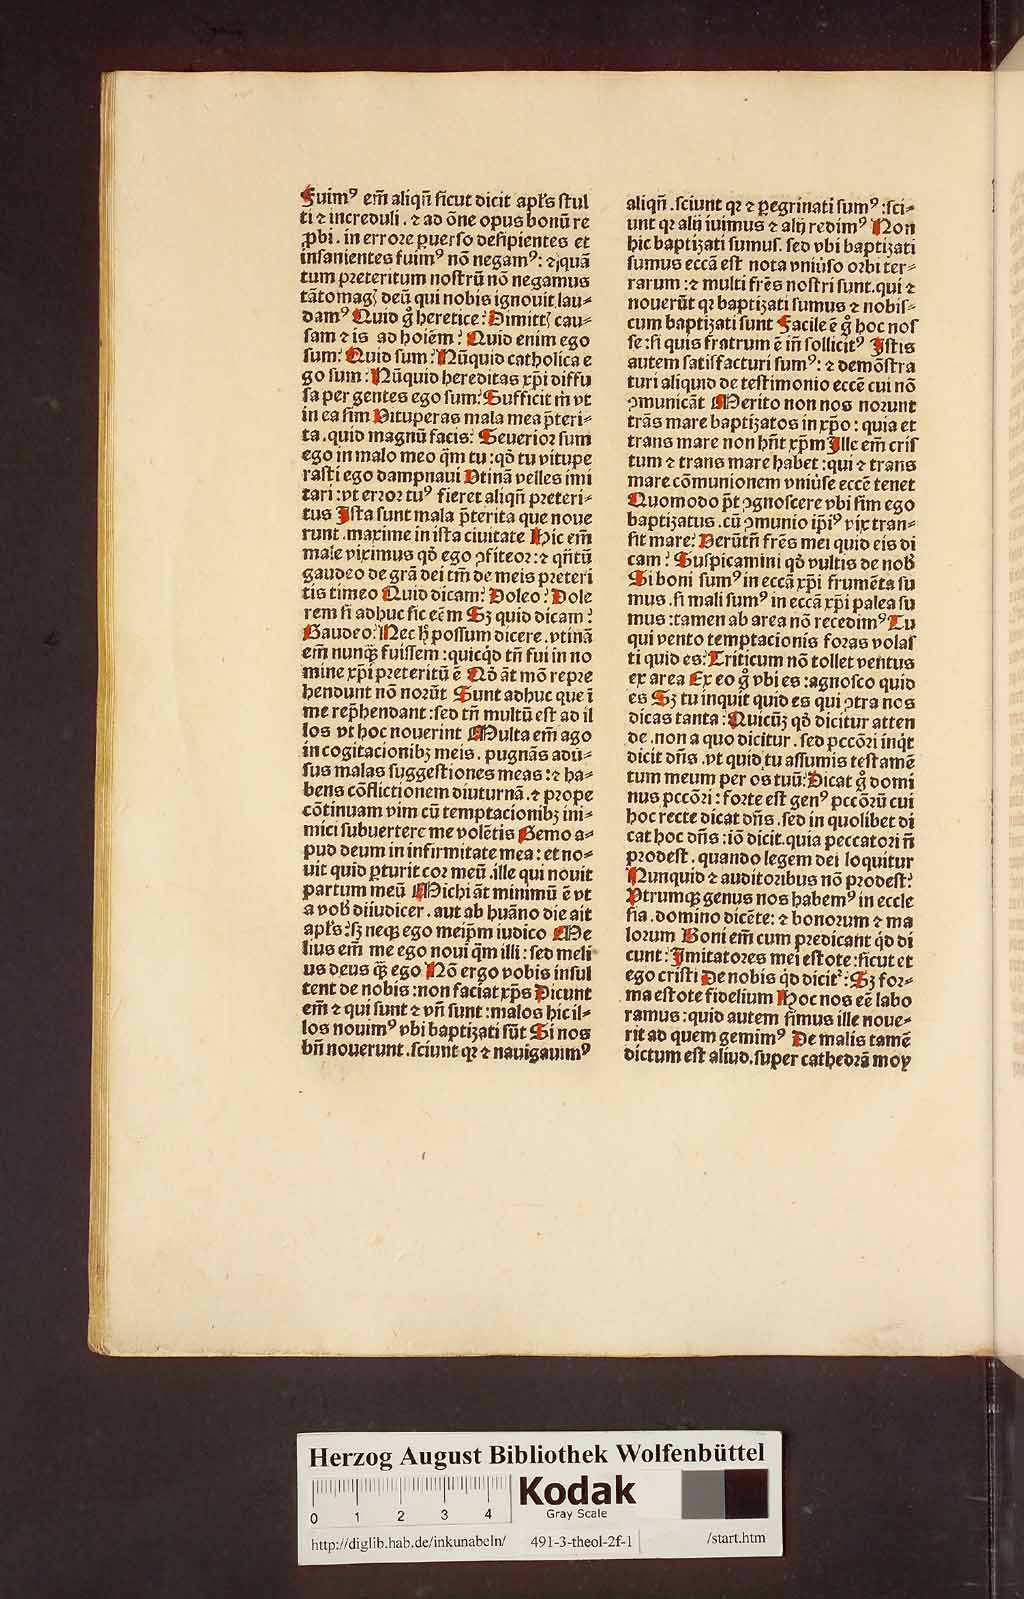 Fuimꝰ em̄ aliqn̄ ſicut dicit apl̄s ſtul
ti ⁊ increduli . ⁊ ad o͞ne opus bonū re
ꝓbi . in errore ꝑuerſo deſipientes et
inſanientes fuimꝰ nō negamꝰ: ⁊ ꝗquā
tum preteritum noſtrū nō negamus
tātomagꝭ deū qui nobis ignouit lau⸗
damꝰ Quid gͦ heretice: Dimittꝭ cau⸗
ſam ⁊ is ad hoiēm: Quid enim ego
ſum: Quid ſum: Nūquid catholica e
go ſum: Nūquid hereditas xp̄i diffu
ſa per gentes ego ſum: Sufficit m̄ vt
in ea ſim Vituperas mala mea p̄teri⸗
ta . quid magnū facis: Seuerior ſum
ego in malo meo q̄m tu : qd̄ tu vitupe
raſti ego dampnaui Vtinā velles imi
tari : vt error tuꝰ fieret aliqn̄ preteri⸗
tus Iſta ſunt mala p̄terita que noue
runt . maxime in iſta ciuitate Hic em̄
male viximus qd̄ ego ꝯfiteor : ⁊ qn̄tū
gaudeo de grā dei tm̄ de meis preteri
tis timeo Quid dicam: Doleo: Dole
rem ſi adhuc ſic eēm Sꝫ quid dicam:
Gaudeo: Nec hꝭ poſſum dicere . vtinā
em̄ nunqꝫ fuiſſem : quicqd̄ tn̄ fui in no
mine xp̄i preteritū ē Qd̄ āt mō repre
hendunt nō norūt Sunt adhuc que ī
me rep̄hendant : ſed tn̄ multū eſt ad il
los vt hoc nouerint Multa em̄ ago
in cogitacionibꝫ meis . pugnās adū⸗
ſus malas ſuggeſtiones meas : ⁊ ha⸗
bens cōflictionem diuturnā . ⁊ prope
cōtinuam vim cū temptacionibꝫ ini⸗
mici ſubuertere me volētis Gemo a⸗
pud deum in infirmitate mea : et no⸗
uit quid ꝑturit cor meū . ille qui nouit
partum meū Michi āt minimū ē vt
a vob̄ diiudicer . aut ab huāno die ait
apl̄s : ſꝫ neqꝫ ego meip̄m iudico Me
lius em̄ me ego noui q̄m illi : ſed meli
us deus qꝫ ego Nō ergo vobis inſul
tent de nobis : non faciat xp̄s Dicunt
em̄ ⁊ qui ſunt ⁊ vn̄ ſunt : malos hic il⸗
los nouimꝰ vbi baptizati ſūt Si nos
bn̄ nouerunt . ſciunt qꝛ ⁊ nauigauimꝰ
aliqn̄ . ſciunt qꝛ ⁊ ꝑegrinati ſumꝰ : ſci⸗
unt qꝛ alij iuimus ⁊ alij redimꝰ Non
hic baptizati ſumus . ſed vbi baptizati
ſumus eccā eſt nota vniūſo orbi ter⸗
rarum : ⁊ multi fr̄es noſtri ſunt . qui ⁊
nouerūt qꝛ baptizati ſumus ⁊ nobiſ⸗
cum baptizati ſunt Facile ē gͦ hoc noſ
ſe : ſi quis fratrum ē in̄ ſollicitꝰ Iſtis
autem ſatiſfacturi ſumꝰ: ⁊ demōſtra
turi aliquid de teſtimonio eccē cui nō
ꝯmunicāt Merito non nos norunt
trās mare baptizatos in xp̄o : quia et
trans mare non hn̄t xp̄m Ille em̄ criſ
tum ⁊ trans mare habet : qui ⁊ trans
mare cōmunionem vniūſe eccē tenet
Quomodo p̄t ꝯgnoſcere vbi ſim ego
baptizatus . cū ꝯmunio ip̄iꝰ vix tran⸗
ſit mare: Verūtn̄ fr̄es mei quid eis di
cam: Suſpicamini qd̄ vultis de nob̄
Si boni ſumꝰ in eccā xp̄i frumēta ſu
mus . ſi mali ſumꝰ in eccā xp̄i palea ſu
mus : tamen ab area nō recedimꝰ Tu
qui vento temptacionis foras volaſ
ti quid es: Triticum nō tollet ventus
ex area Ex eo gͦ vbi es : agnoſco quid
es Sꝫ tu inquit quid es qui ꝯtra nos
dicas tanta : Quicūꝫ qd̄ dicitur atten
de . non a quo dicitur . ſed pccōri inqͥt
dicit dn̄s . vt quid tu aſſumis teſtamē
tum meum per os tuū: Dicat gͦ domi
nus pccōri : forte eſt genꝰ pccōrū cui
hoc recte dicat dn̄s . ſed in quolibet di
cat hoc dn̄s : iō dicit . quia peccatori n̄
prodeſt . quando legem dei loquitur
Nunquid ⁊ auditoribus nō prodeſt:
Vtrumqꝫ genus nos habemꝰ in eccle
ſia . domino dicēte : ⁊ bonorum ⁊ ma
lorum Boni em̄ cum predicant qd̄ di
cunt : Imitatores mei eſtote : ſicut et
ego criſti De nobis qd̄ dicit᷑ : Sꝫ for⸗
ma eſtote fidelium Hoc nos eē labo
ramus : quid autem ſimus ille noue⸗
rit ad quem gemimꝰ De malis tamē
dictum eſt aliud . ſuper cathedrā moy
Herzog August Bibliothek Wolfenbüttel
0 1 2 3 4
Kodak
Gray Scale
http://diglib.hab.de/inkunabeln/ 491-3-theol-2f-1 /start.htm